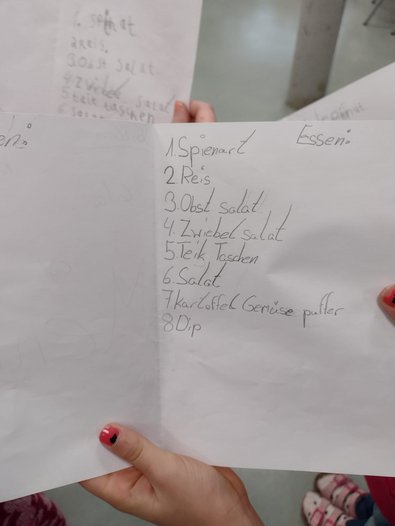 1. spinat
2 Reis.
3. Obst salat
4. Zwiebel salat
5 teik taschen
6. Salat
en:
Essen:
1. Spienart
2 Reis
3. Obst salat
4. Zwiebel salat
5. Teik Taschen
6. Salat
7 Kartoffel Gemüse puffer
8 Dip